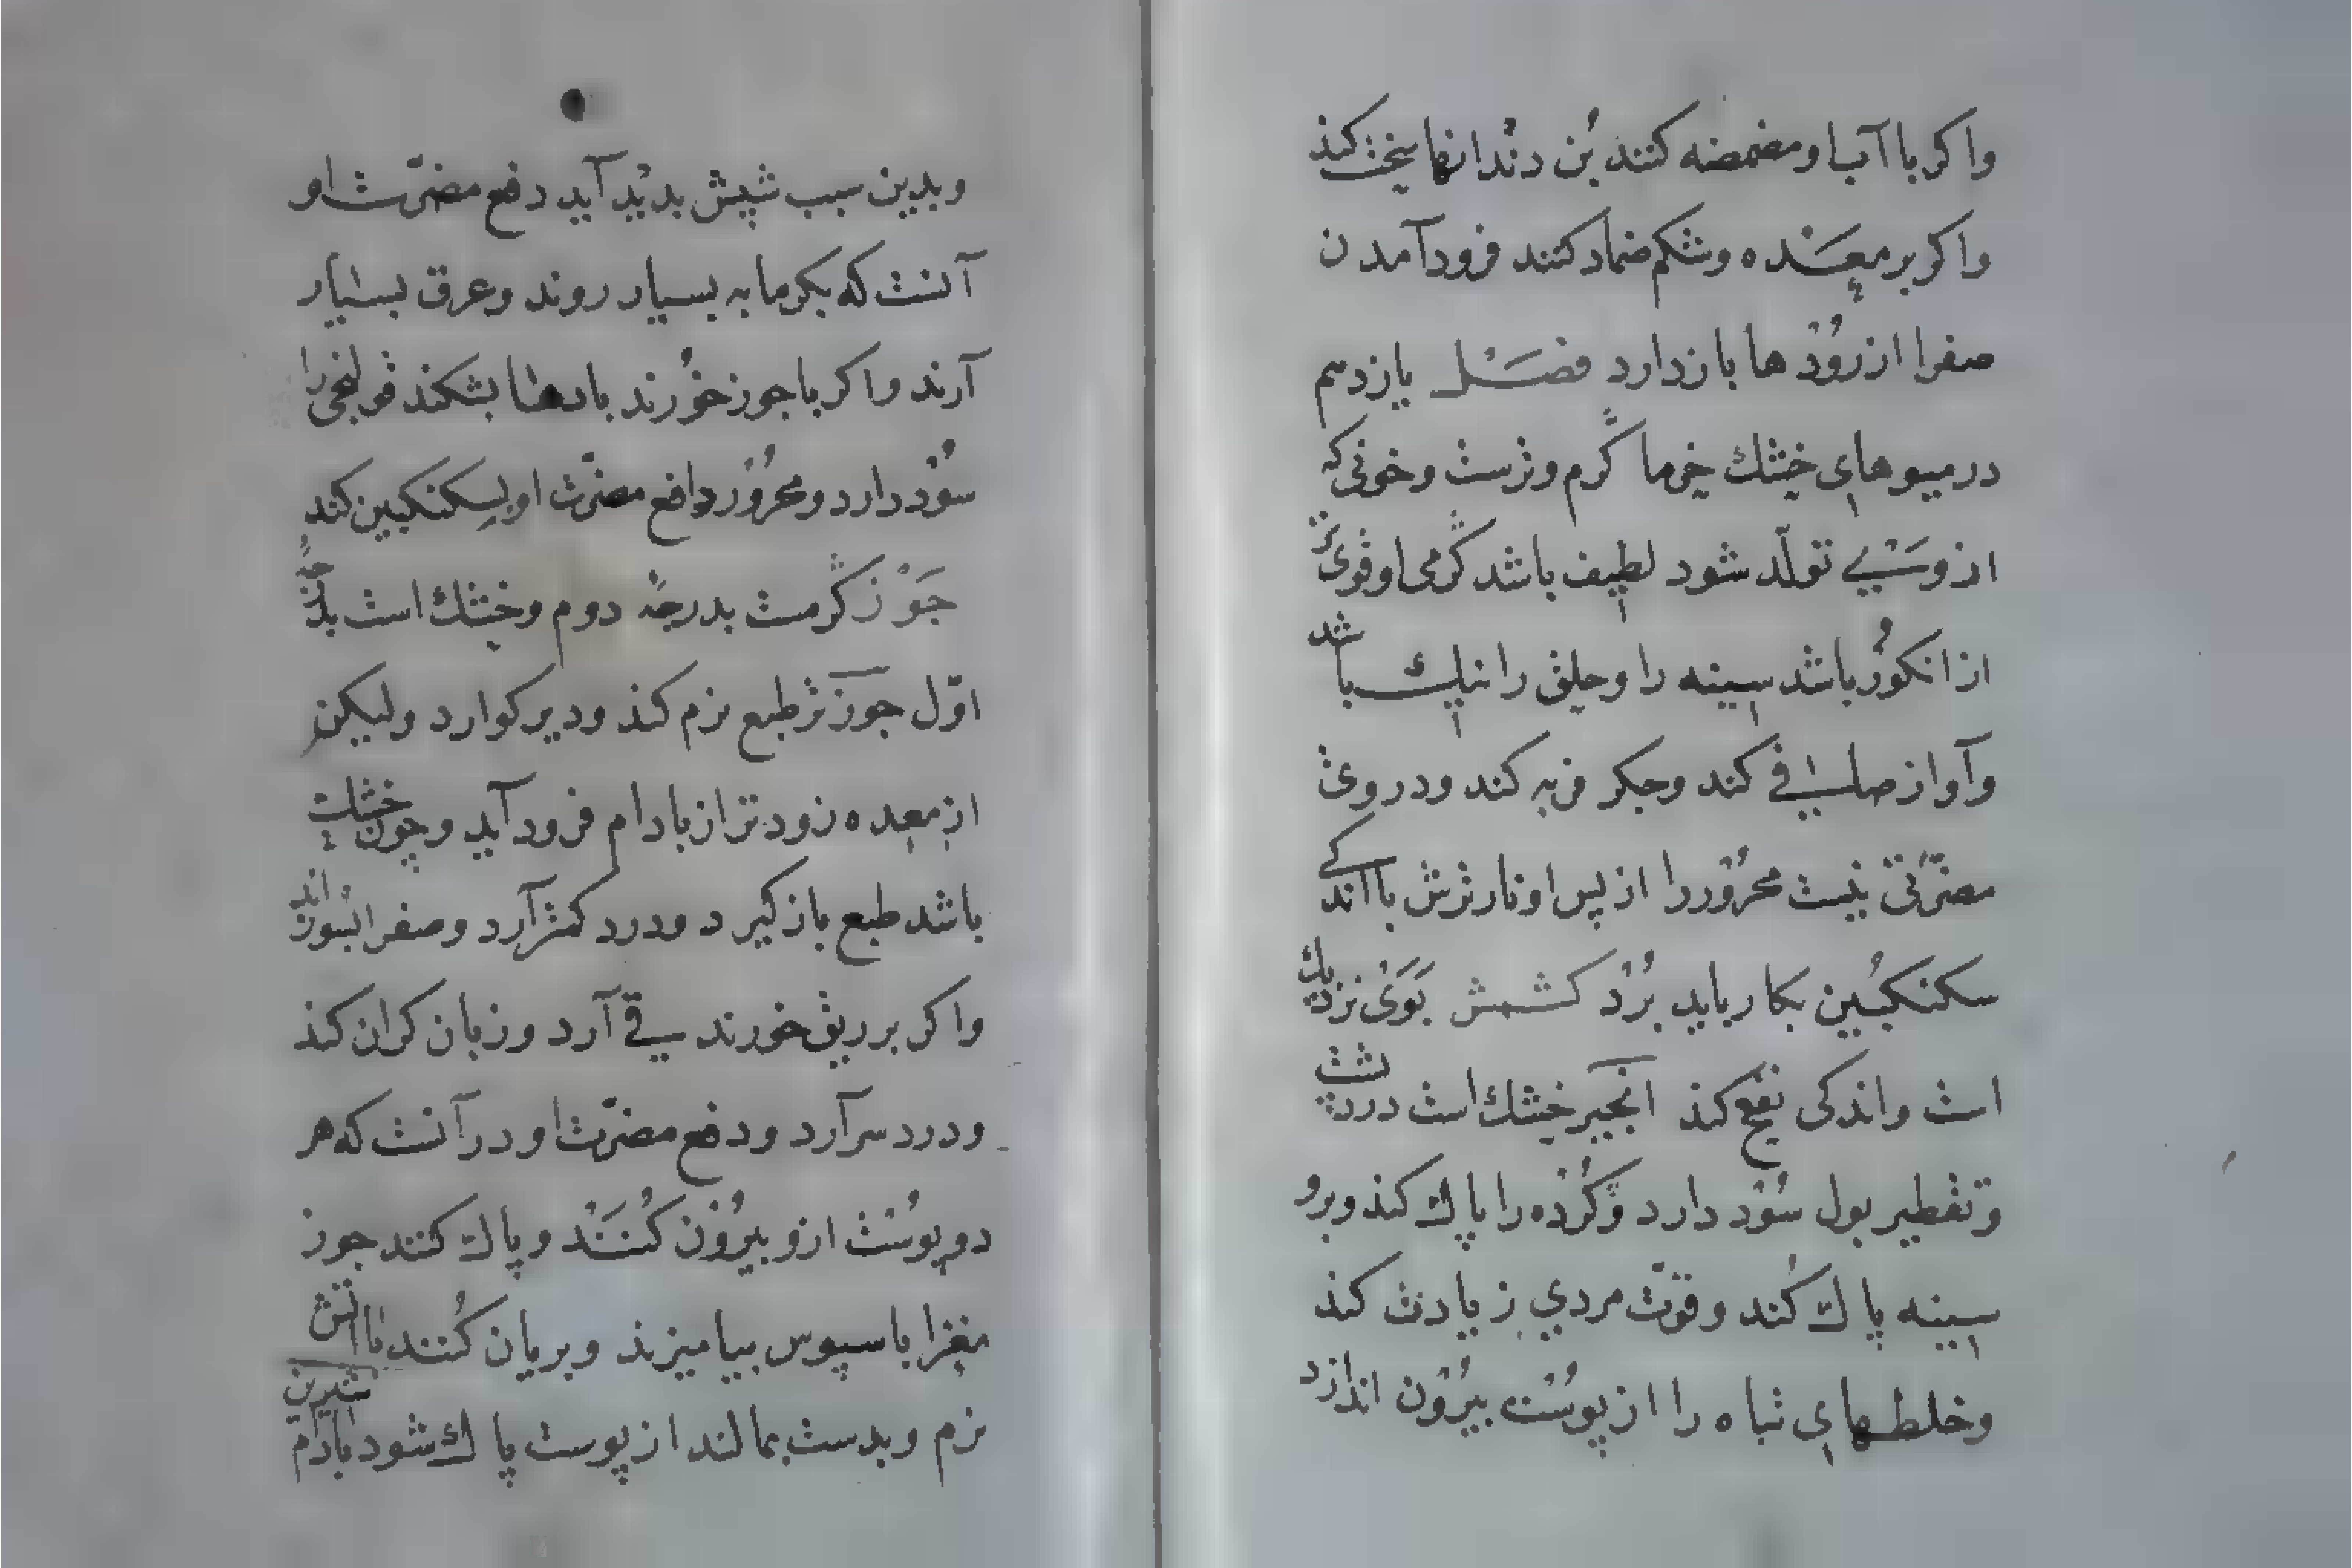 واکر با آب او مضمضه کنند بُن دندانها سخت کند
واکر بر معده و شکم ضماد کنند فرود آمدن
صفرا از رُوذها باز دارد فصل یازدهم
در میوهای خشك خرما کرم و ترست و خونی که
از وی تولّد شود لطیف باشد کرمی او قوی تر
از انکور باشد سینه را و حلق را نیك باشد
و آواز صافی کند و جکر فربه کند و در وی
مضرّتی نیست محرور را از پس او نار ترش با اندکی
سکنکبین بکار باید بُرد کشمش بَوَی نزدیك
است و اندکی نفخ کند انجیر خشك است درد پشت
و تقطیر بول سُوذ دارد و کُرده را پاك کند و برو
سینه پاك کُند و قوّت مردی زیادت کند
و خلطهای تباه را از پوست بیرُون اندازد
و بدین سبب شپش بدید آید دفع مضرّت او
آنست که بکرمابه بسیار روند و عرق بسیار
آرند واکر با جوز خورند بادها بشکند قولنجی را
سُوذ دارد و محرُور دافع مضرّت او بسکنکبین کند
جَوْز کرمست بدرجهٔ دوم و خشك است بدرجهٔ
اوّل جوز تر طبع نرم کند و دیر کوارد ولیکن
از معده زودتر از بادام فرود آید و چون خشك
باشد طبع باز کیرد و درد کمتر آرد و صفرا بسوزاند
واکر بر ریق خورند قی آرد و زبان کران کند
و درد سر آرد و دفع مضرّت او در آنست که هر
دو پوست ازو بیرُون کُنَند و پاك کنند جوز
مغز را با سپوس بیامیزند و بریان کُنند با آتش
نرم و بدست بمالند از پوست پاك شود بادام شیرین